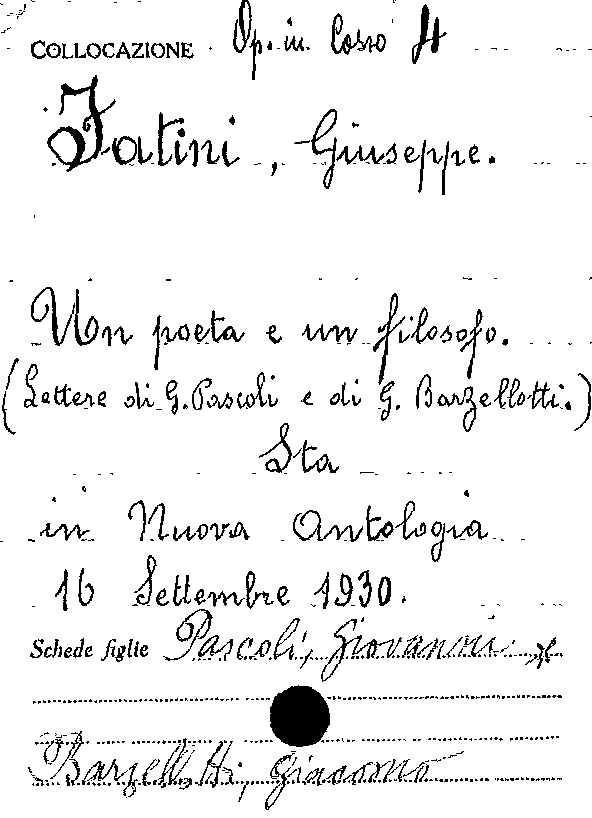 COLLOCAZIONE Op. in Cosso 4
Fatini, Giuseppe.
Un poeta e un filosofo.
(Lettere di G. Pascoli e di G. Barzellotti.)
Sta
in Nuova Antologia
16 Settembre 1930.
Schede figlie Pascoli, Giovanni
Barzellotti, Giacomo